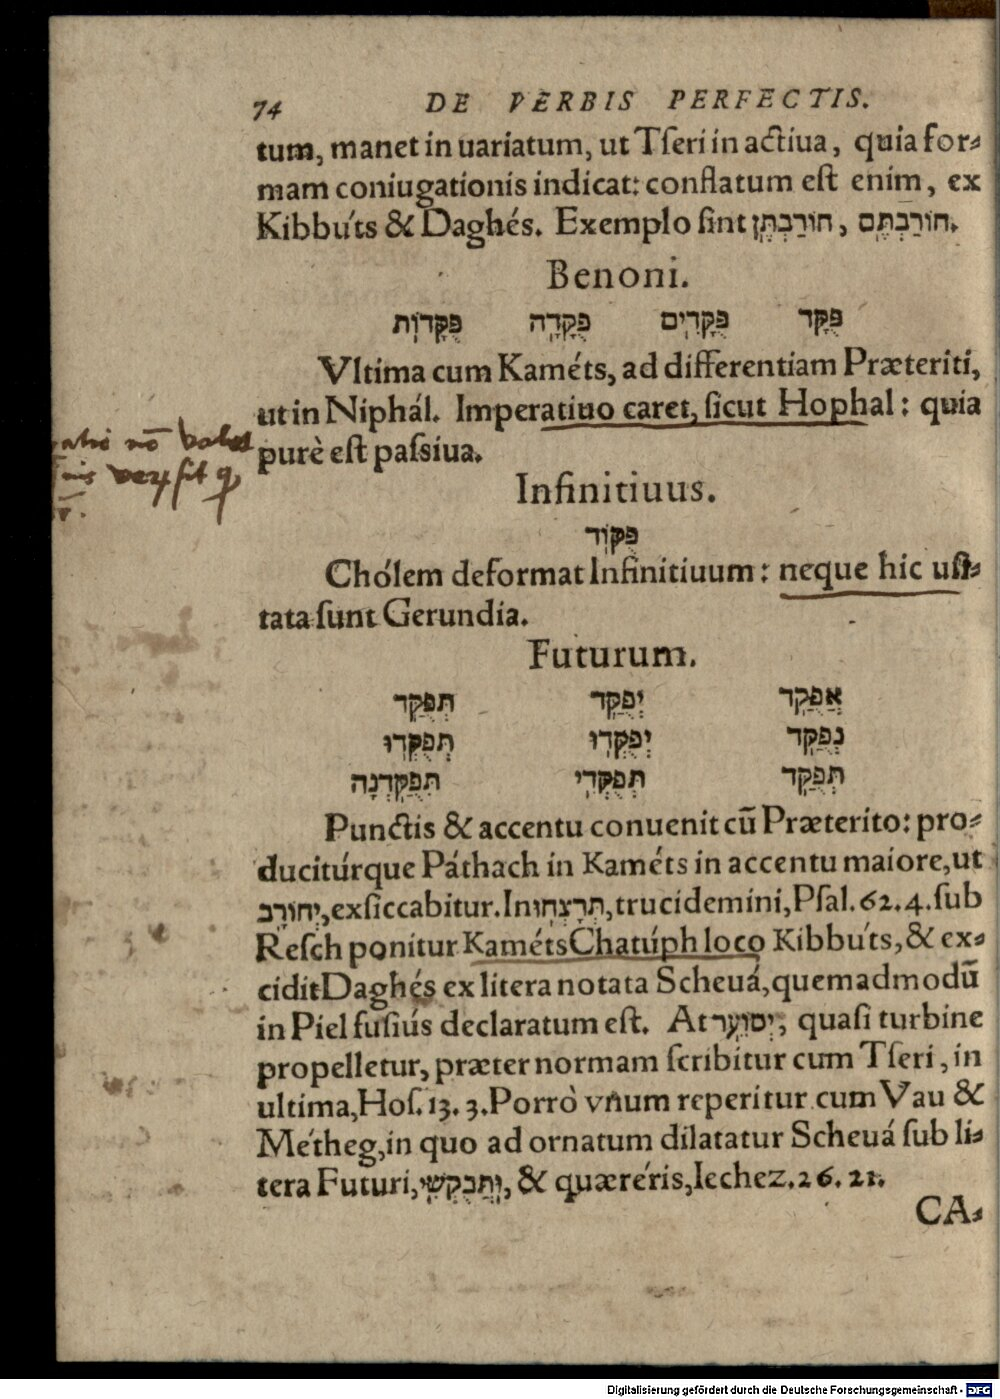 74 DE VERBIS PERFECTIS.
tum, manet in uariatum, ut Tſeri in actiua, quia for⸗
mam coniugationis indicat: conflatum eſt enim, ex
Kibbúts & Daghés. Exemplo ſint חוֹרַבְתֶּן, חוֹרַבְתֶּם.
Benoni.
פֻּקָּד פֻּקָּדִים פֻּקָּדָה פֻּקָּדוֹת
Vltima cum Kaméts, ad differentiam Præteriti,
ut in Niphál. Imperatiuo caret, ſicut Hophal: quia
purè eſt paſsiua.
Infinitiuus.
פֻּקּוֹד
Chólem deformat Infinitiuum: neque hic uſi⸗
tata ſunt Gerundia.
Futurum.
אֲפֻקַּד יְפֻקַּד תְּפֻקַּד
נְפֻקַּד יְפֻקְּדוּ תְּפֻקְּדוּ
תְּפֻקַּד תְּפֻקְּדִי תְּפֻקַּדְנָה
Punctis & accentu conuenit cū Præterito: pro⸗
ducitúrque Páthach in Kaméts in accentu maiore, ut
יְחוֹרָב, exſiccabitur. In תְּרָצְּחוּ, trucidemini, Pſal. 62. 4. ſub
Reſch ponitur Kaméts Chatúph loco Kibbúts, & ex⸗
cidit Daghés ex litera notata Scheuá, quemadmodū
in Piel fuſiús declaratum eſt. At יְסוֹעֵר, quaſi turbine
propelletur, præter normam ſcribitur cum Tſeri, in
ultima, Hoſ. 13. 3. Porrò vnum reperitur cum Vau &
Métheg, in quo ad ornatum dilatatur Scheuá ſub li⸗
tera Futuri, וּתֲבֻקְשִׁי, & quæréris, Iechez. 26. 21.
CA⸗
nō
ſit
Digitalisierung gefördert durch die Deutsche Forschungsgemeinschaft - DFG